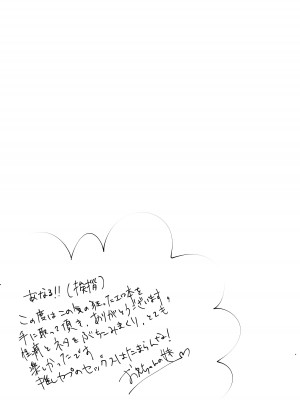 あなる!!(挨拶)
この度はこの気の狂ったエロ本を
手に取って頂き、ありがとうございます。
性癖とネタをぶちこみまくり、とても
楽しかったです
推しカプのセックスはたまらんな!